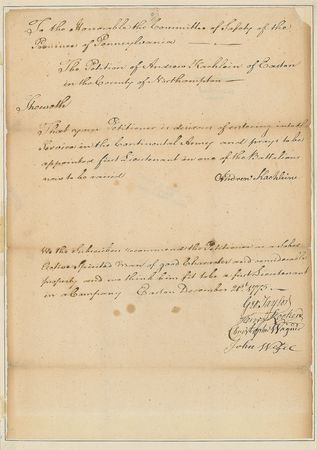 To the Honorable the Committee of Safety of the
Province of Pennsylvania
The Petition of Andrew Kachlein of Easton
in the County of Northampton
Sheweth
That your Petitioner is desirous of entering into the
Service in the Continental Army and prays to be
appointed first Lieutenant in one of the Battalions
now to be raised
Andrew Kachlein
We the Subscribers recommend the Petitioner as a Sober
active Spirited Man of good Character and considerable
property and we think him fit to be a first Lieutenant
in a Company Easton December 21st 1775
Geo. Taylor
Christopher Wagner
John